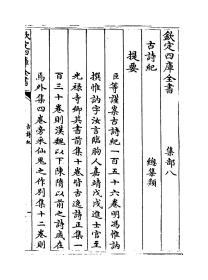 欽定四庫全書　集部八
古詩紀　總集類
提要
臣等謹案古詩紀一百五十六卷明馮惟訥
撰惟訥字汝言臨朐人嘉靖戊戌進士官至
光祿寺卿其書前集十卷皆古逸詩正集一
百三十卷則漢魏以下陳隋以前之詩外集
四卷旁采仙鬼之作別集十二卷則
欽定四庫全書
古詩紀